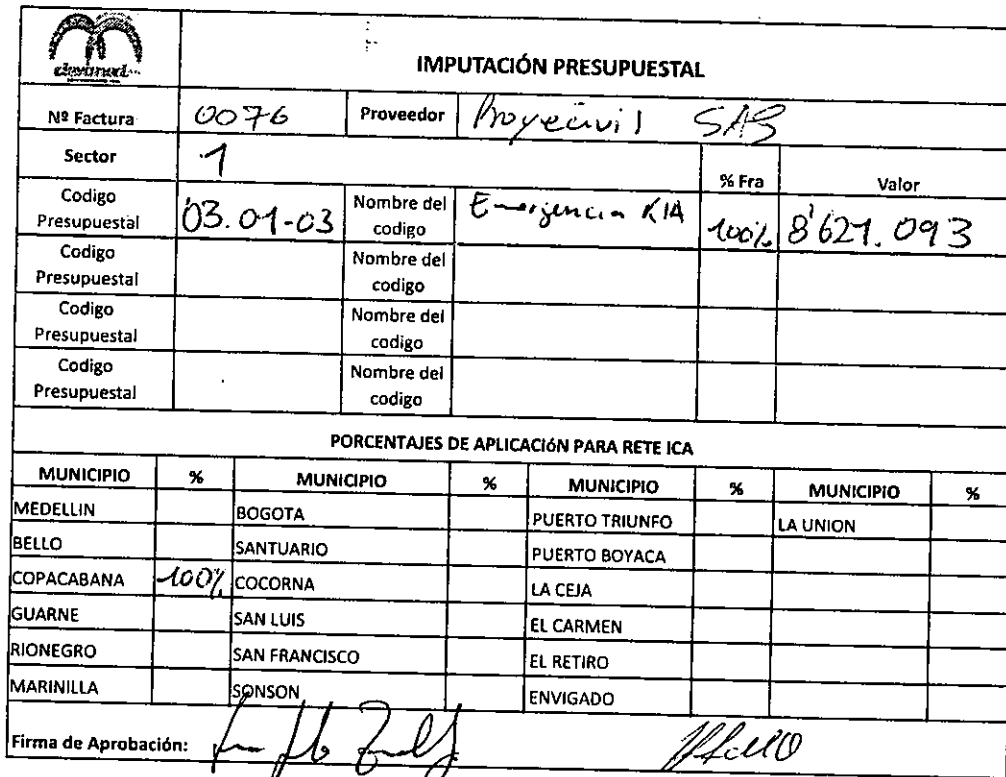 devimed
IMPUTACIÓN PRESUPUESTAL
Nº Factura 0076 Proveedor Proyecivil SAS
Sector 1 % Fra Valor
Codigo Presupuestal 03.01-03 Nombre del codigo Emergencia K1A 100% 8'621.093
Codigo Presupuestal Nombre del codigo
Codigo Presupuestal Nombre del codigo
Codigo Presupuestal Nombre del codigo
PORCENTAJES DE APLICACIÓN PARA RETE ICA
MUNICIPIO % MUNICIPIO % MUNICIPIO % MUNICIPIO %
MEDELLIN BOGOTA PUERTO TRIUNFO LA UNION
BELLO SANTUARIO PUERTO BOYACA
COPACABANA 100% COCORNA LA CEJA
GUARNE SAN LUIS EL CARMEN
RIONEGRO SAN FRANCISCO EL RETIRO
MARINILLA SONSON ENVIGADO
Firma de Aprobación: